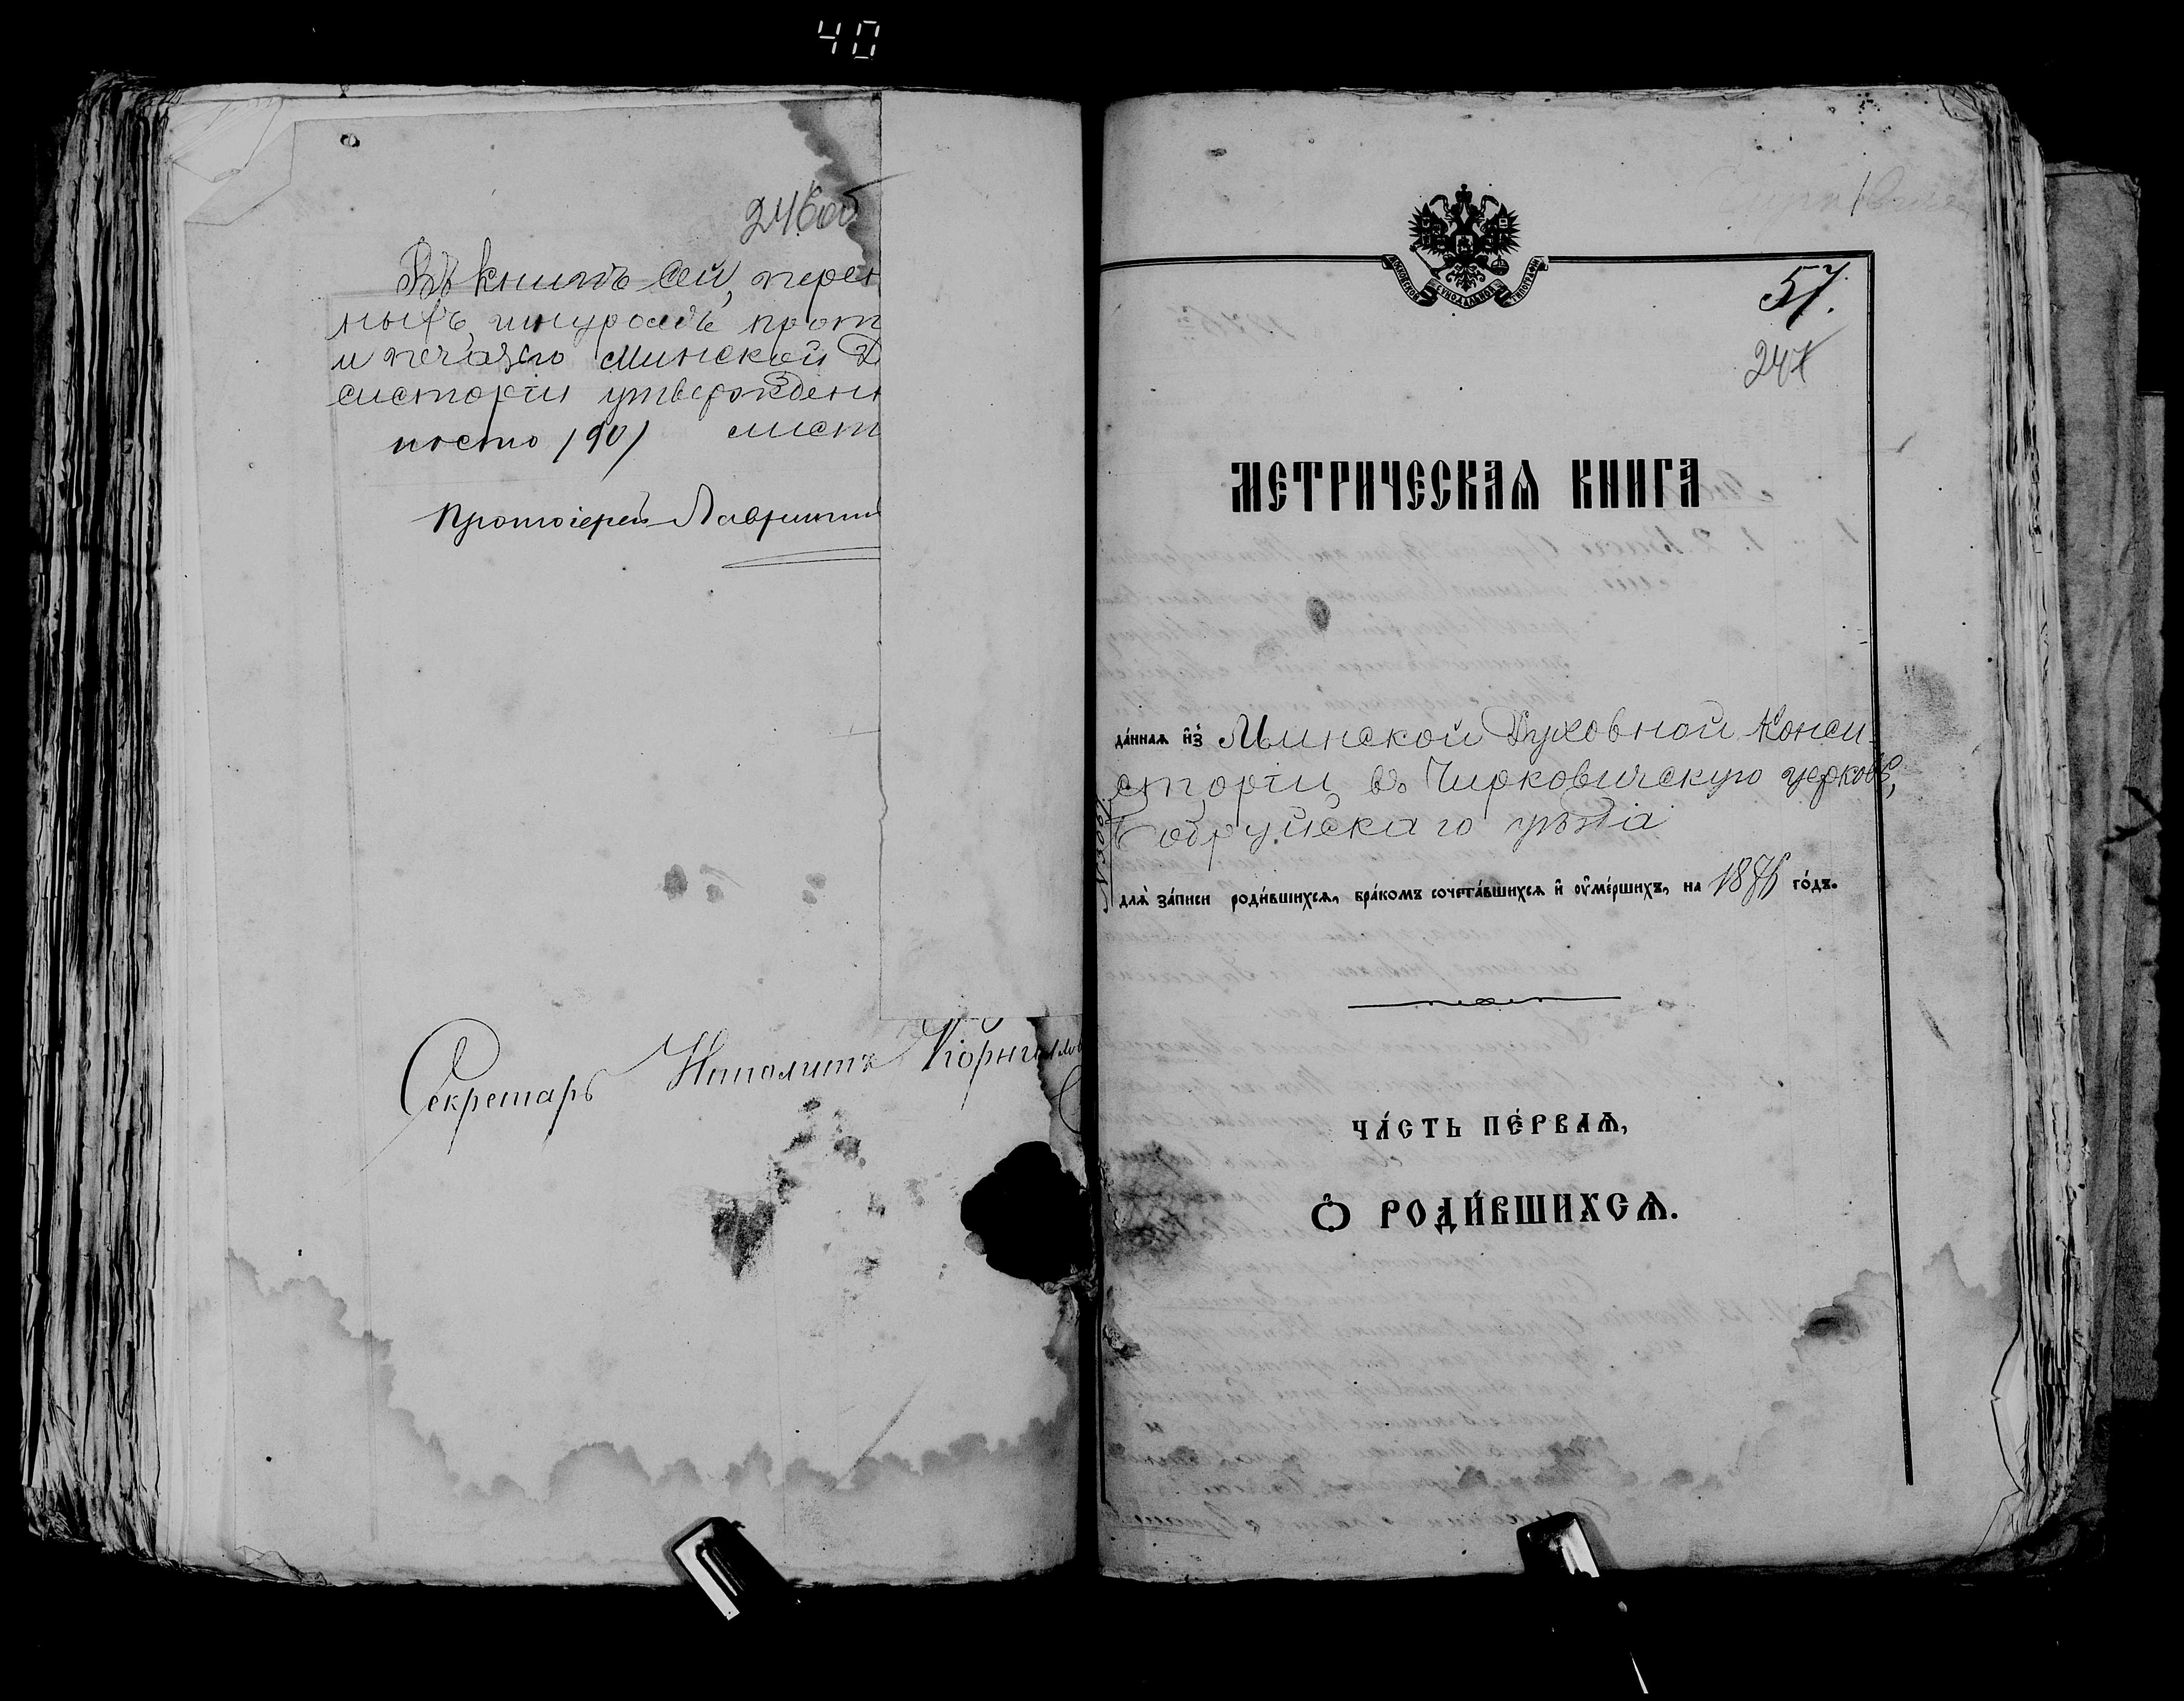 40
246об
Въ книгѣ сей, перен
ныхъ, шнуромъ прот
и печатью Минской Д
систоріи утвержден
листъ
Протоіерей
Секретарь Ипполитъ Корнил
МОСКОВСКОЙ СѴНОДАЛЬНОЙ ТИПОГРАФІИ
57.
247
МЕТРИЧЕСКАѦ КНИГА
да́ннаѧ и҆з̾ Минской Духовной Конси-
сторіи, въ Чирковичскую церковь,
Бобруйскаго уѣзда
длѧ̀ за́писи роди́вшихсѧ, бра́комъ сочета́вшихсѧ и҆ ᲂу҆ме́ршихъ, на 1876 го́дъ.
ЧА́СТЬ ПЕ́РВАѦ,
Ѽ РОДИ́ВШИХСѦ.